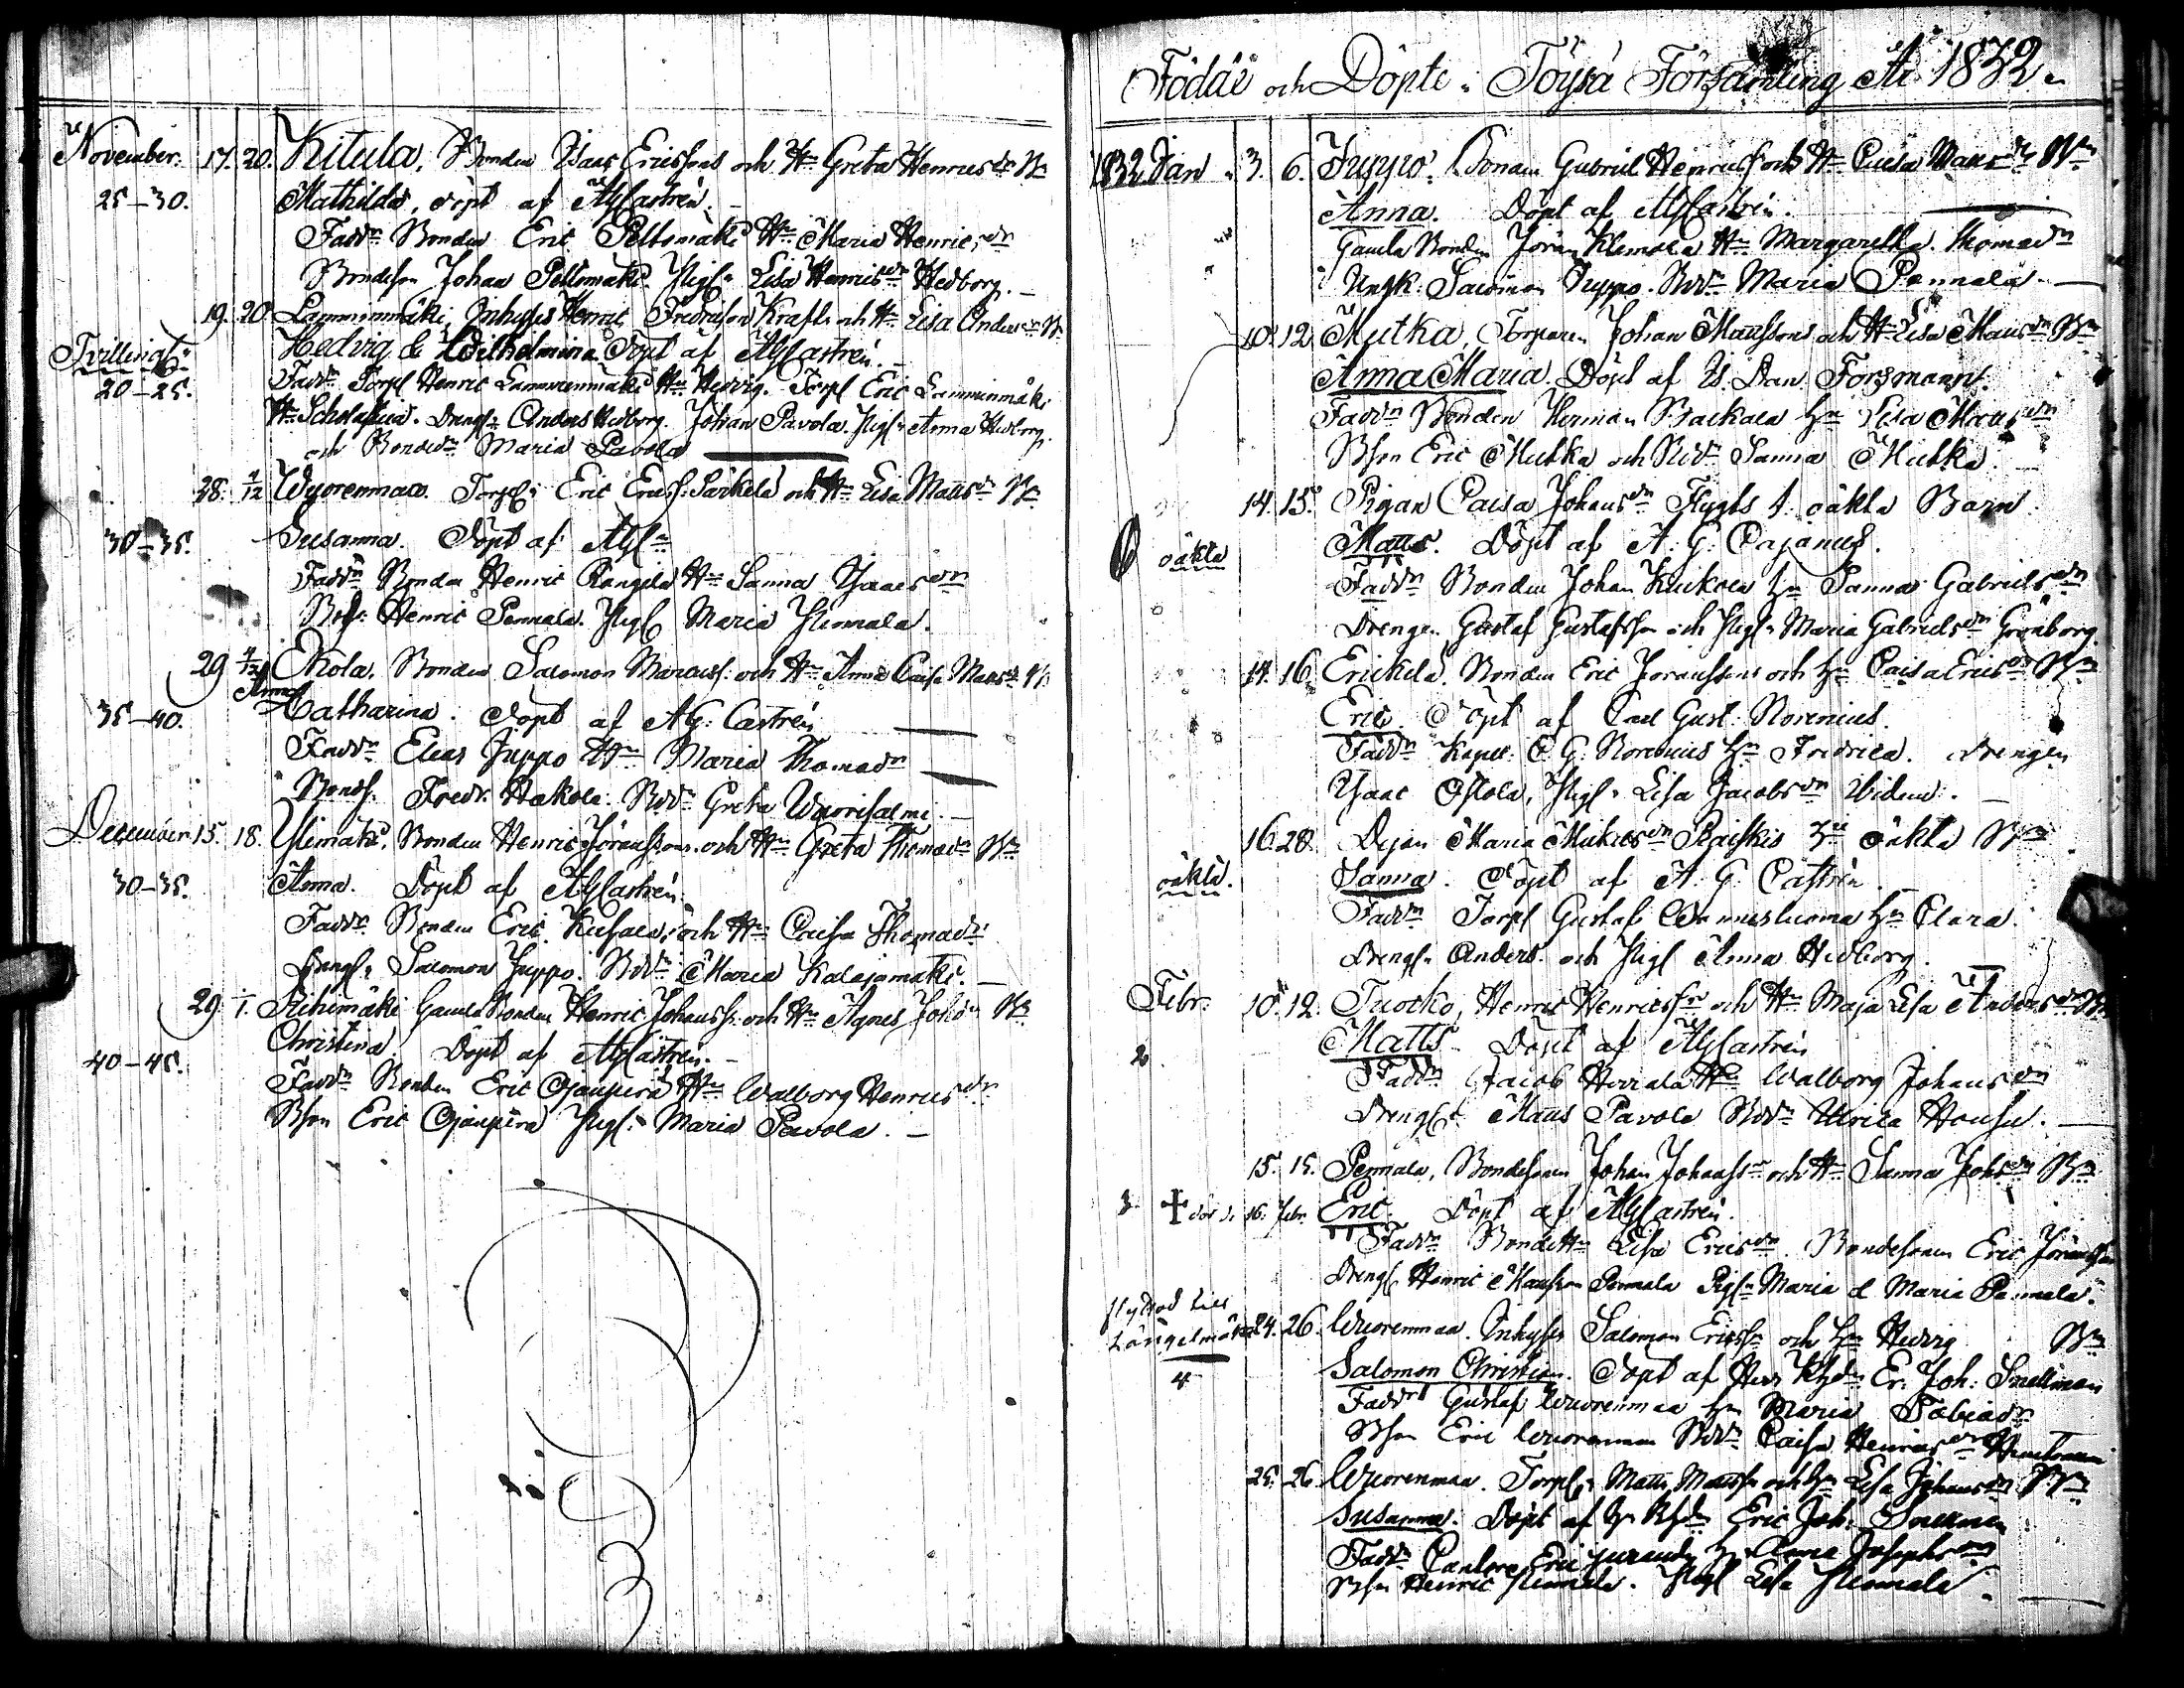 November. 17. 20. Kitula, Bonden Isaac Ericssons och H:u Greta Henricsdr Bn
25-30. Mathilda, döpt af AGCastrén.
Faddr Bonden Eric Peltomäki H:u Maria Henricsdr
Bondeson Johan Peltomäki. Pigl: Lisa Henricsdr Hedborg.
19. 20 Lamminmäki, Inhyses Henric Fredricson Kraft och H:u Lisa Andersdr Bn
Tvillingar Hedvig & Wilhelmina Döpt af AGCastrén.
20-25. Faddr Torpl Henric Lamminmäki H:u Hedvig. Torpl Eric Lamminmäki
H:u Scholastica. Drengl: Anders Hedborg. Johan Pavola. Pigl: Anna Hedborg.
och Bondedr Maria Pavola
28. 1/12 Wuorenmaa. Torpl: Eric Ericss: Särkelä och H:u Lisa Mattsdr Bn
30-35. Susanna. Döpt af AGCn
Faddr Bonden Henric H:u Sanna Isaacsdr
Henric Pennala. Pigl Maria Niemala.
29 1/12 Okola. Bonden Salomon Marcuss: och H:u Anna Caisa Mattsdr
Anna
35-40. Catharina. Döpt af AG. Castrén
Faddr Elias Juppo H:u Maria Thomasdr
Bonds. Fredr. Hakola. Bdr Greta Wuorisalmi.
December 15. 18. Ylimäki, Bonden Henric Göranssons och H:u Greta Thomasdr Bn
30-35. Anna. Döpt af AGCastrén
Faddr Bonden Eric och H:u Caisa Thomasdr
Drengl: Salomon Juppo. Bdr Maria Kalajamäki.
29 1/1. Riihimäki Gamla Bonden Henric Johanss: och H:u Agnes Johsdr Bn
Christina. Döpt af AGCastrén.
40-45. Faddr Bonden Eric Ojanperä H:u Walborg Henricsdr
Bson Eric Ojanperä Pigl: Maria Pavola.
Födde och Döpte i Töysä Församling År 1832.
1832 Jan. 3. 6. Juppo. Bonden Gabriel Henricss och H:u Caisa Mattsdr Bn
Anna. Döpt af AGCastrén.
Gamla Bonden Jöran Klemola H:u Margaretha Thomasdr
Ungk. Salomon Juppo. Bdr Maria Pennala.
10. 12. Mutka, Torparen Johan Matssons och H:u Lisa Mattsdr Bn
Anna Maria. Döpt af Is. Dan. Forsmann.
Faddr Bonden Herman H:u Lisa Mattsdr
Bson Eric Mutka och Bdr Sanna Mutka.
14. 15. Pigan Caisa Johansdr Flygts 1. oäkta Barn
oäkta Matts. Döpt af A. G. Cajanus.
Faddr Bonden Johan H:u Sanna Gabrielsdr
Drengen Gustaf Gustafsson och Pigl: Maria Gabrielsdr Grönborg.
14. 16. Erickelä. Bonden Eric Joranssons och H:u Caisa Ericsdr Bn
Eric. Döpt af Carl Gust. Norenius.
Faddr Kapel. C G. Norenius H:u Fredrica. Drengen
Isaac Ostola, Pigl: Lisa Jacobsdr ibidem.
16. 28. Pigan Maria 3:e oäkta Bn
oäkta. Sanna. Döpt af A. G. Castrén.
Faddr Torpl Gustaf H:u Clara.
Drengl: Anders och Pigl Anna Hedborg.
Febr. 10. 12. Tuorko, Henric Henricsson och H:u Maja Lisa Andersdr Bn
2 Matts Döpt af AGCastrén
Faddr Jacob Herrala H:u Walborg Johansdr
Drengl: Matts Pavola Bdr Ulrica
15. 15. Pennala, Bondesonen Johan Johanss: och H:u Sanna Johsdr Bn
3 död d. 16. Febr. Eric. Döpt af AGCastrén.
Faddr Bonde H:u Lisa Ericsdr. Bondesonen Eric Jöransson
Drengl Henric Matsson Pennala Pigl: Maria & Maria Pennala.
flyttad till Längelmäki 24. 26. Wuorenmaa. Inhyses Salomon Ericss: och H:u Hedvig Bn
4 Salomon Christian. Döpt af Herr Er. Joh. Snellman
Faddr Gustaf Wuorenmaa H:u Maria Tobiasdr
Bson Eric Wuorenmaa Bdr Caisa Henricsdr
25. 26. Wuorenmaa. Torpl: Matts Mattss: och H:u Lisa Johansdr Bn
Susanna. Döpt af Eric Joh. Snellman
Faddr Cantorn Eric H:u Anna Josephsdr
Bson Henric Niemala. Pigl Lisa Niemala